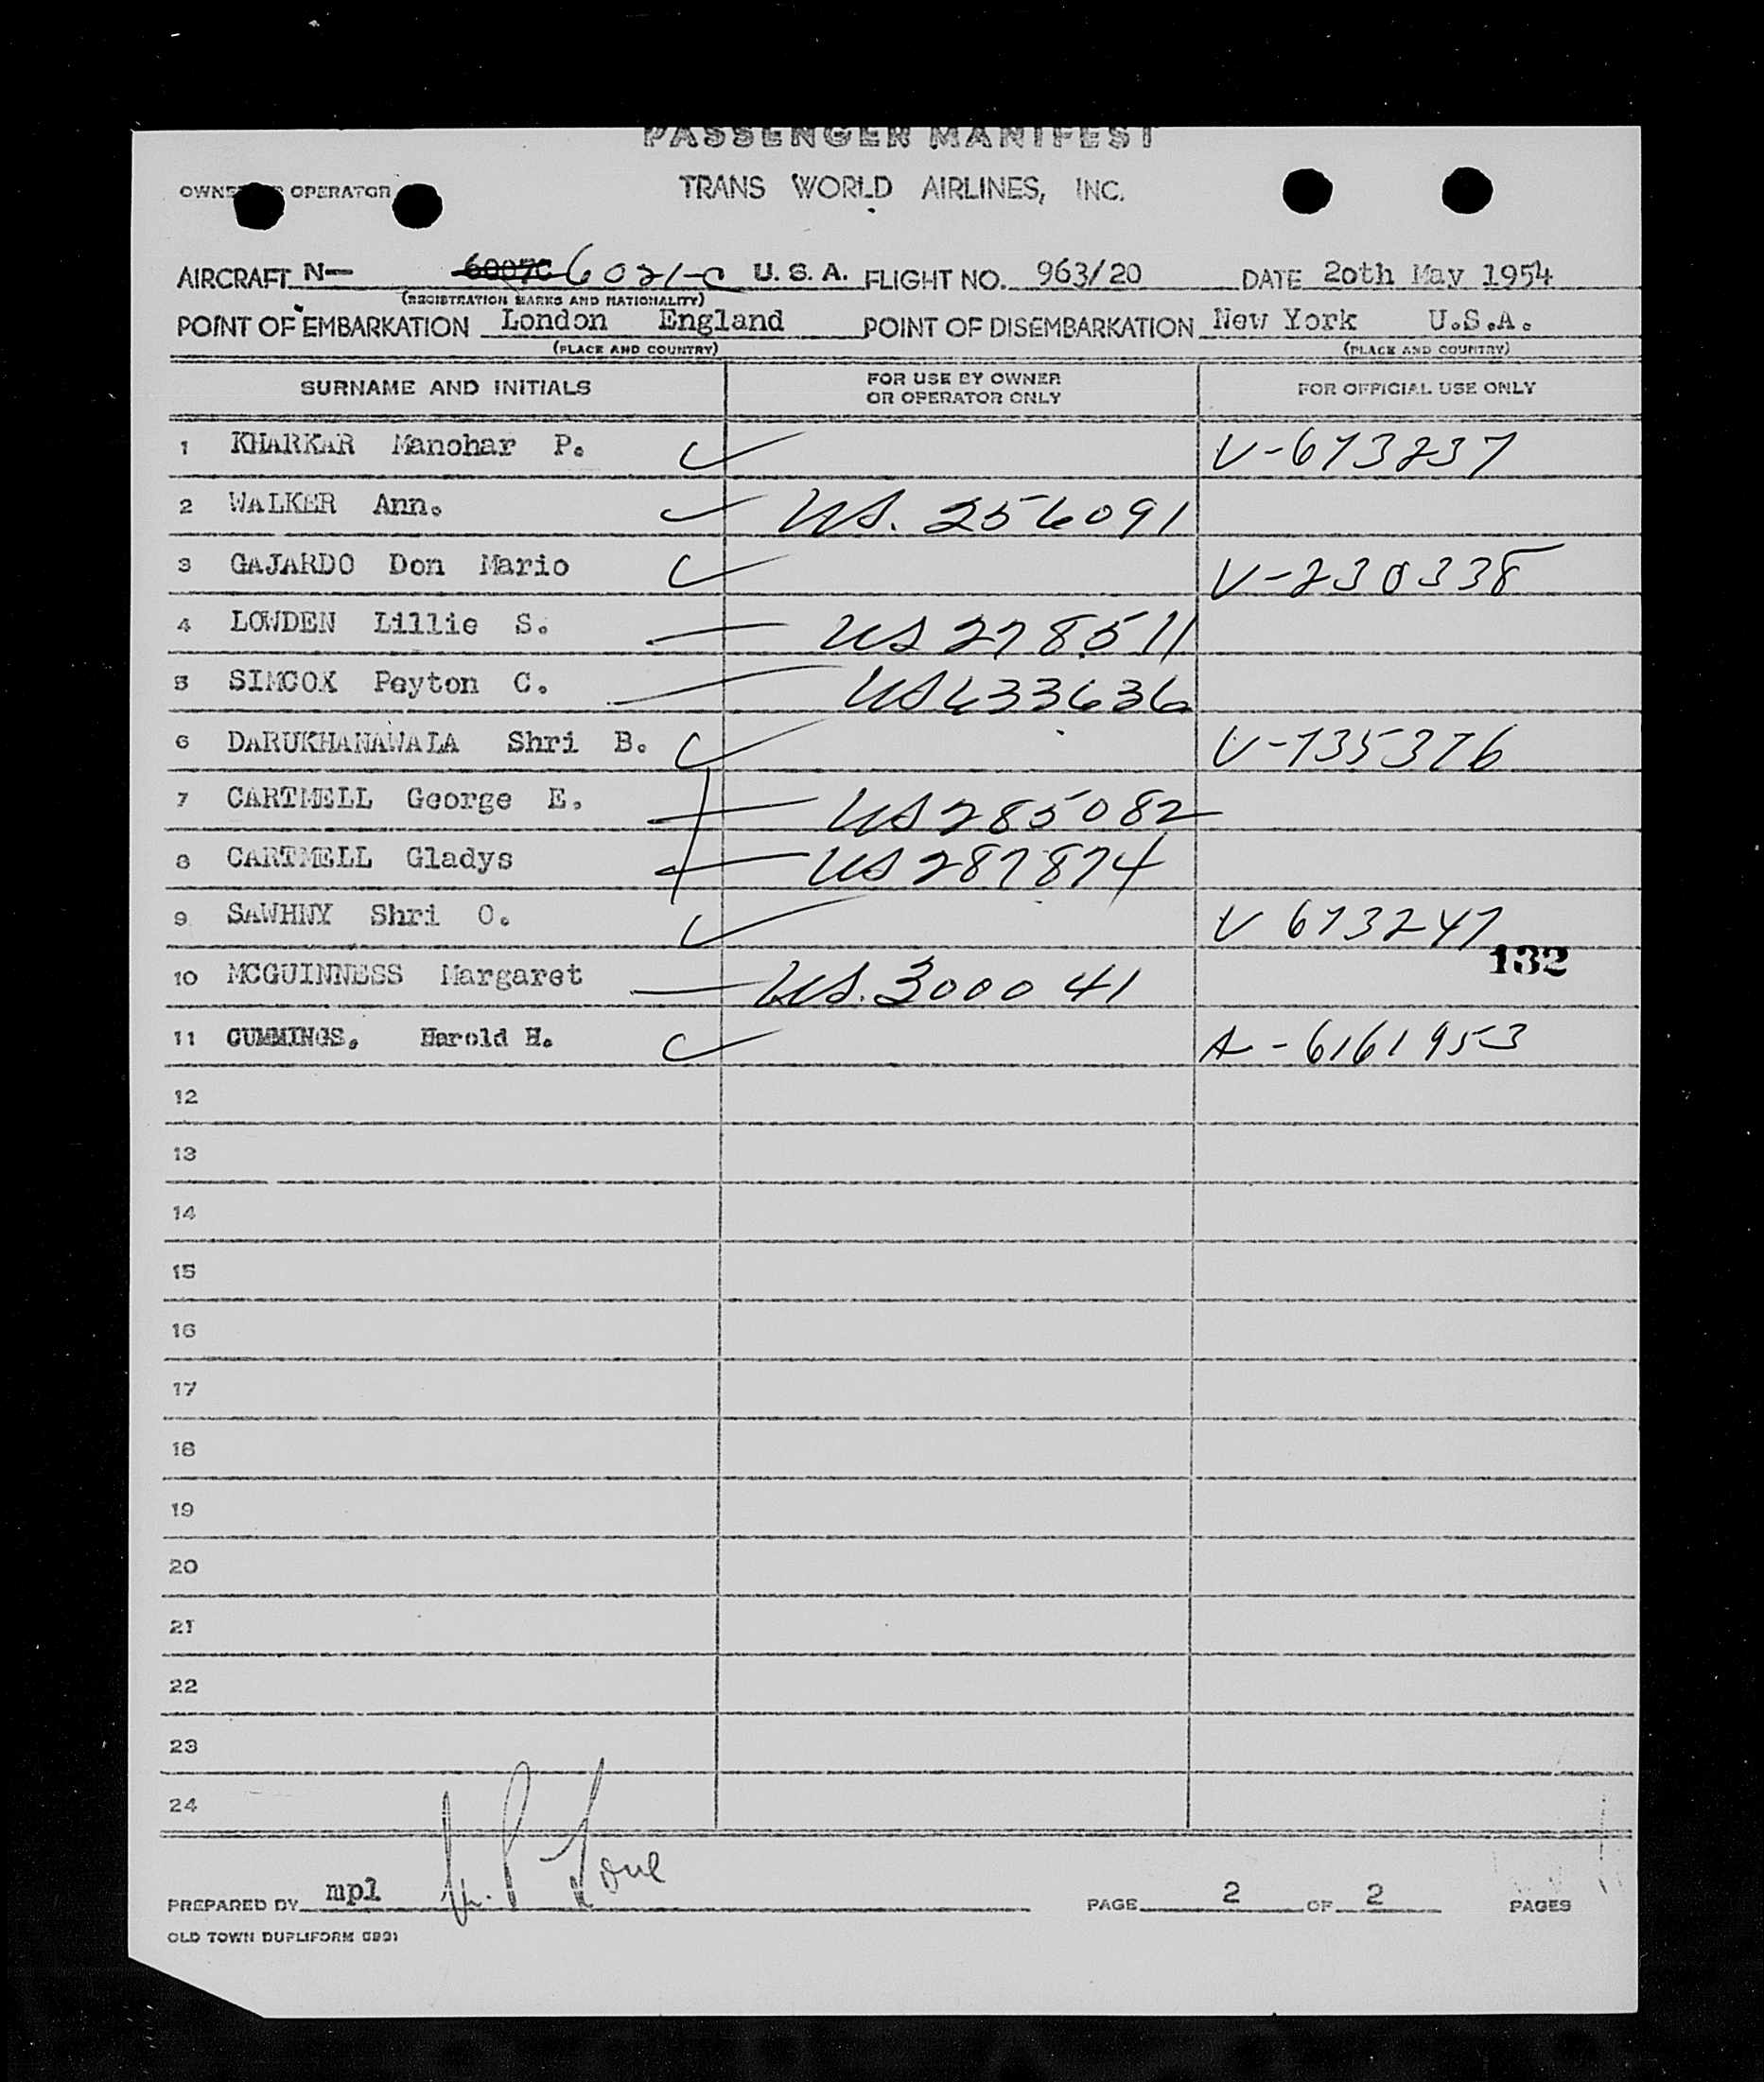 PASSENGER MANIFEST
OWNER OR OPERATOR TRANS WORLD AIRLINES, INC.
AIRCRAFT N— 6007C 6021-C U. S. A. FLIGHT NO. 963/20 DATE 20th May 1954
(REGISTRATION MARKS AND NATIONALITY)
POINT OF EMBARKATION London England POINT OF DISEMBARKATION New York U.S.A.
(PLACE AND COUNTRY) (PLACE AND COUNTRY)
SURNAME AND INITIALS FOR USE BY OWNER OR OPERATOR ONLY FOR OFFICIAL USE ONLY
1 KHARKAR Manohar P. V-673237
2 WALKER Ann. US. 256091
3 GAJARDO Don Mario V-230338
4 LOWDEN Lillie S. US 278511
5 SIMCOX Peyton C. US 633636
6 DARUKHANAWALA Shri B. V-735376
7 CARTMELL George E. US 285082
8 CARTMELL Gladys US 287874
9 SAWHNY Shri O. V 673247
132
10 MCGUINNESS Margaret US. 300041
11 CUMMINGS. Harold H. A-6161953
12
13
14
15
16
17
18
19
20
21
22
23
24
PREPARED BY mpl M. P. Lowe PAGE 2 OF 2 PAGES
OLD TOWN DUPLIFORM